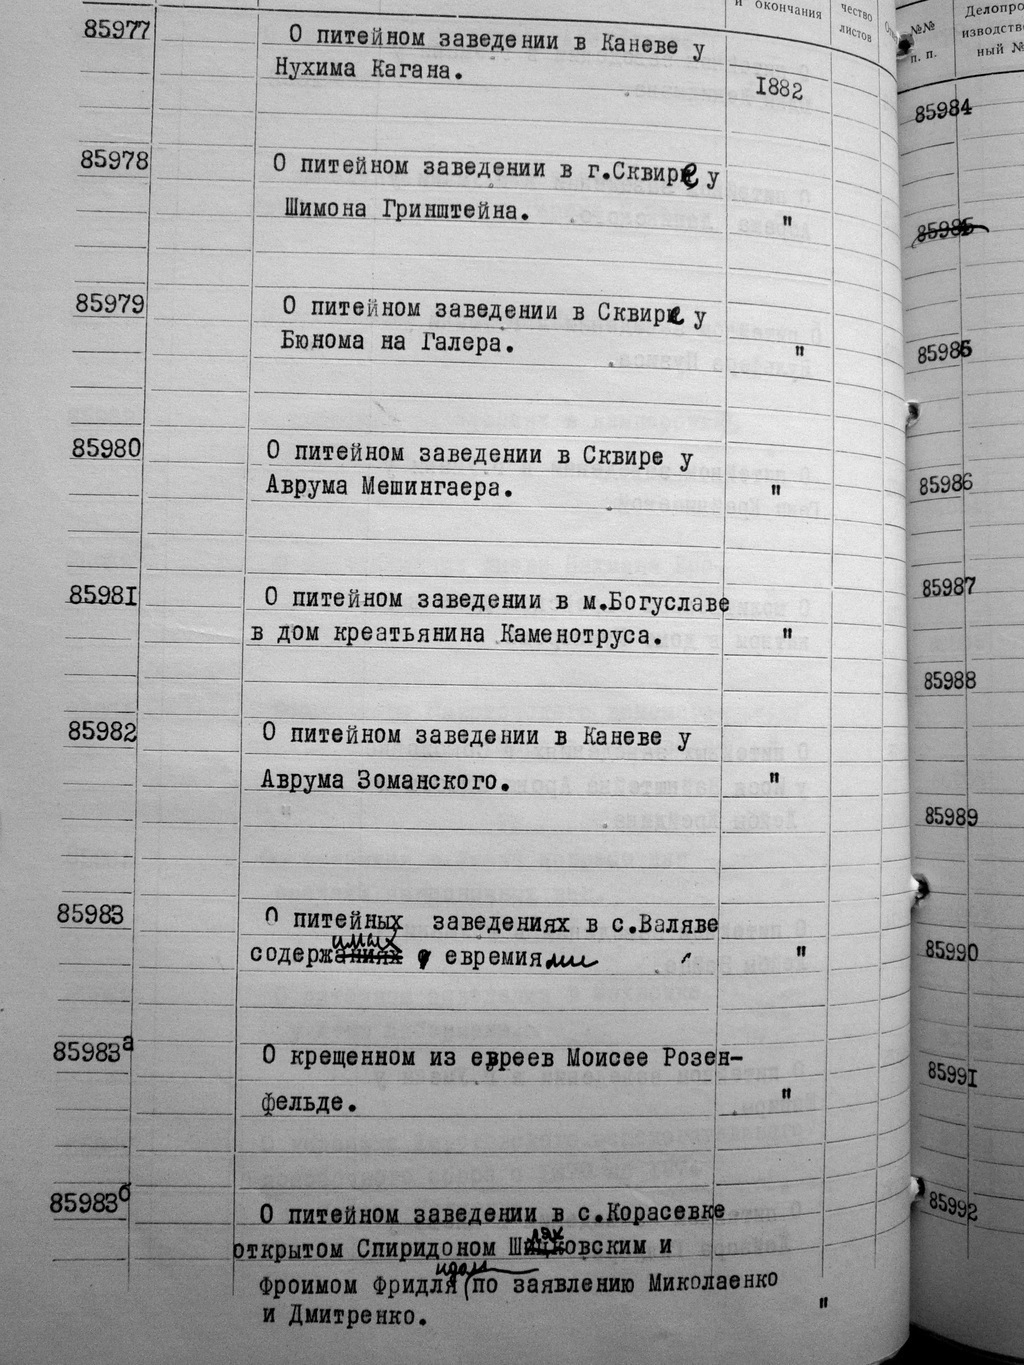 и окончания
чество
листов
85977
О питейном заведении в Каневе у
Нухима Кагана.
1882
85978
О питейном заведении в г.Сквире у
Шимона Гринштейна.
"
85979
О питейном заведении в Сквире у
Бюнома на Галера.
"
85980
О питейном заведении в Сквире у
Аврума Мешингаера.
"
85981
О питейном заведении в м.Богуславе
в дом креатьянина Каменотруса.
"
85982
О питейном заведении в Каневе у
Аврума Зоманского.
"
85983
О питейных заведениях в с.Валяве
имых
содержаниях евремиями
"
85983а
О крещенном из евреев Моисее Розен-
фельде.
"
85983б
О питейном заведении в с.Корасевке
открытом Спиридоном Шидковским и
Фроимом Фридля по заявлению Миколаенко
и Дмитренко.
"
№№
п. п.
Делопро
изводстве
ный №
85984
85985
85985
85986
85987
85988
85989
85990
85991
85992